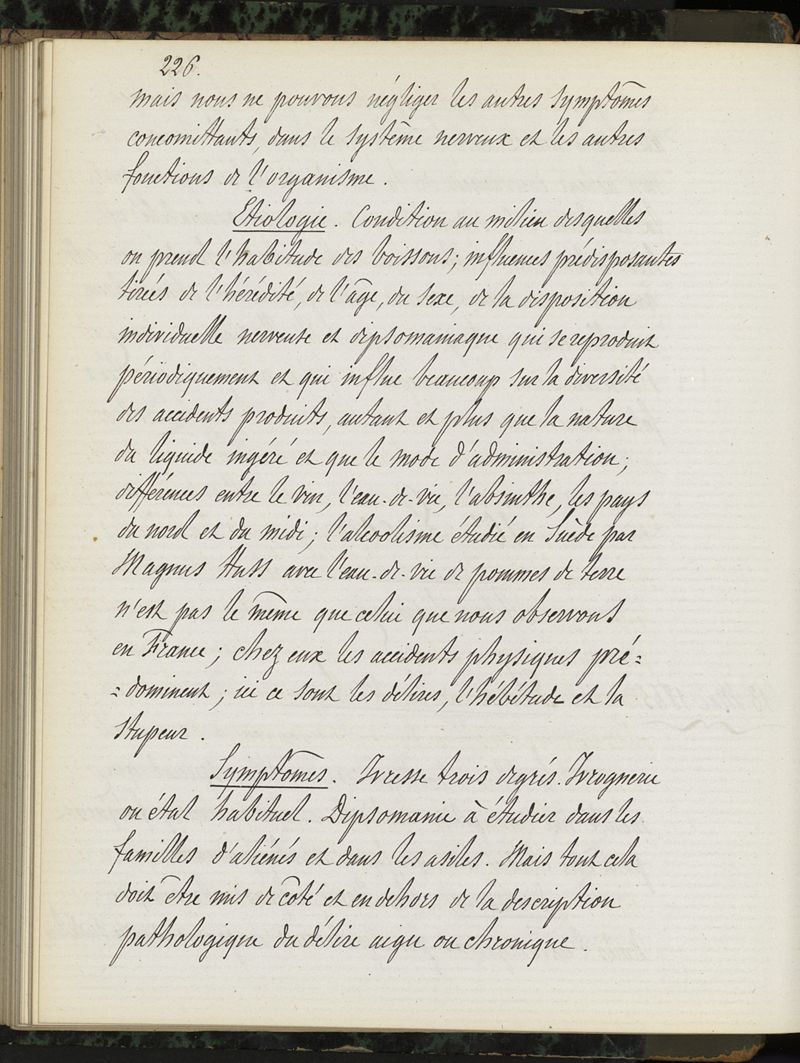 226.
mais nous ne pouvons négliger les autres symptômes
concomittants, dans le système nerveux et les autres
fonctions de l'organisme.
Etiologie. Condition au milieu desquelles
on prend l'habitude des boissons; influences prédisposantes
tirées de l'hérédité, de l'âge, du sexe, de la disposition
individuelle nerveuse et dipsomaniaque qui se reproduit
périodiquement et qui influe beaucoup sur la diversité
des accidents produits, autant et plus que la nature
du liquide ingéré et que le mode d'administration;
différences entre le vin, l'eau-de-vie, l'absinthe, les pays
du nord et du midi; l'alcoolisme étudié en Suède par
Magnus Huss avec l'eau-de-vie de pommes de terre
n'est pas le même que celui que nous observons
en France; chez eux les accidents physiques pré=
=dominent; ici ce sont les délires, l'hébétude et la
stupeur.
Symptômes. Ivresse trois degrés. Ivrognerie
ou état habituel. Dipsomanie à étudier dans les
familles d'aliénés et dans les asiles. Mais tout cela
doit être mis de côté et en dehors de la description
pathologique du délire aigu ou chronique.